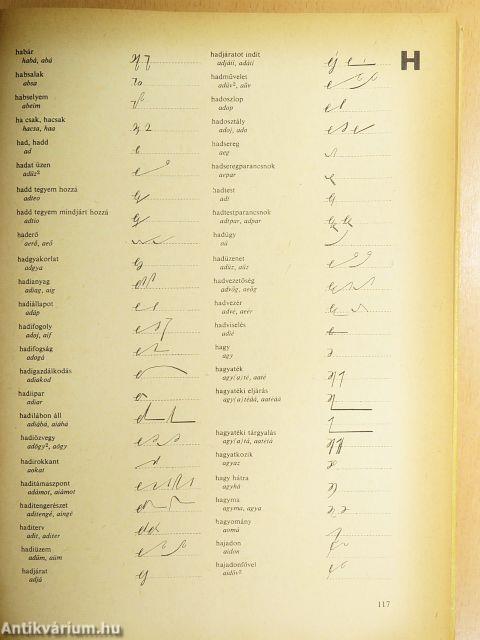 habár
habá, abá
habsalak
absa
habselyem
abeim
ha csak, hacsak
hacsa, haa
had, hadd
ad
hadat üzen
adüz²
hadd tegyem hozzá
adteo
hadd tegyem mindjárt hozzá
adtio
haderő
aerő, aeő
hadgyakorlat
adgya
hadianyag
adiag, aig
hadiállapot
adáp
hadifogoly
adoj, aif
hadifogság
adogá
hadigazdálkodás
adiakod
hadiipar
adiar
hadilábon áll
adiábá, aiábá
hadiözvegy
adögy², aögy
hadirokkant
aokat
haditámaszpont
adámot, aiámot
haditengerészet
aditengé, aingé
haditerv
adit, aditer
hadiüzem
adüm, aüm
hadjárat
adjá
hadjáratot indít
adjáii, adáti
hadművelet
adüv², aüv
hadoszlop
adop
hadosztály
adoj, ado
hadsereg
aeg
hadseregparancsnok
aepar
hadtest
adt
hadtestparancsnok
adtpar, adpar
hadügy
aü
hadüzenet
adüz, aüz
hadvezetőség
advőg, aeög
hadvezér
advé, aeér
hadviselés
adié
hagy
agy
hagyaték
agy(a)té, aaté
hagyatéki eljárás
agy(a)tédá, aatédá
hagyatéki tárgyalás
agy(a)tá, aatétá
hagyatkozik
agyaz
hagy hátra
agyhá
hagyma
agyma, agya
hagyomány
aomá
hajadon
aidon
hajadonfővel
aidöv²
H
117
Antikvárium.hu